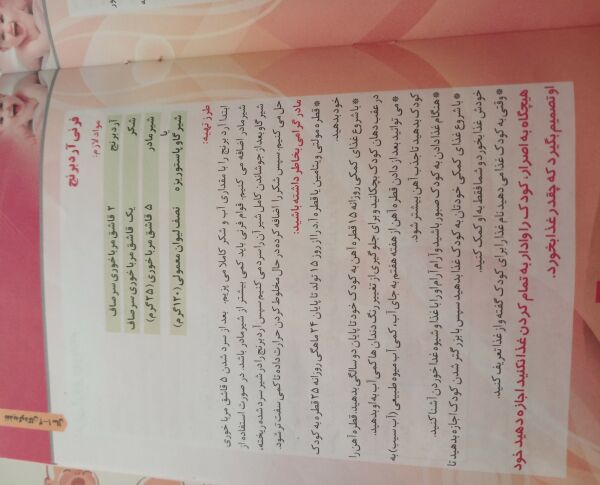 فرنی آرد برنج
مواد لازم:
آرد برنج ۲ قاشق مرباخوری سرصاف
شکر یک قاشق مرباخوری سرصاف
شیر مادر ۵ قاشق مرباخوری (۲۵ گرم)
یا
شیر گاو پاستوریزه نصف لیوان معمولی (۱۲۰ گرم)
طرز تهیه:
ابتدا آرد برنج را با مقداری آب و شکر کاملا می پزیم. بعد از سرد شدن ۵ قاشق مرباخوری
شیر مادر اضافه می کنیم. قوام فرنی باید کمی بیشتر از شیر مادر باشد. در صورت استفاده از
شیر گاو بعد از جوشاندن کامل شیر آن را سرد می کنیم سپس آرد برنج را در شیر سرد شده ریخته،
حل می کنیم. سپس شکر را اضافه کرده در حال مخلوط کردن حرارت داده تا کمی سفت تر شود.
مادر گرامی بخاطر داشته باشید:
* قطره مولتی ویتامین یا قطره آ.د را از روز ۱۵ تولد تا پایان ۲۴ ماهگی روزانه ۲۵ قطره به کودک
خود بدهید.
* با شروع غذای کمکی روزانه ۱۵ قطره آهن به کودک خود تا پایان دو سالگی بدهید قطره آهن را
در عقب دهان کودک بچکانید و برای جلوگیری از تغییر رنگ دندان ها کمی آب به او بدهید.
* می توانید بعد از دادن قطره آهن از هفته هفتم به جای آب، کمی آب میوه طبیعی (آب سیب) به
کودک بدهید تا جذب آهن بیشتر شود.
* هنگام غذا دادن به کودک صبور باشید و آرام آرام او را با غذا و شیوه غذا خوردن آشنا کنید.
* با شروع غذای کمکی خودتان به کودک غذا بدهید سپس با بزرگتر شدن کودک اجازه بدهید تا
خودش غذا بخورد و شما فقط به او کمک کنید.
* وقتی به کودک غذا می دهید نام غذا را برای کودک گفته و از غذا تعریف کنید.
هیچگاه به اصرار، کودک را وادار به تمام کردن غذا نکنید اجازه دهید خود
او تصمیم بگیرد که چقدر غذا بخورد.